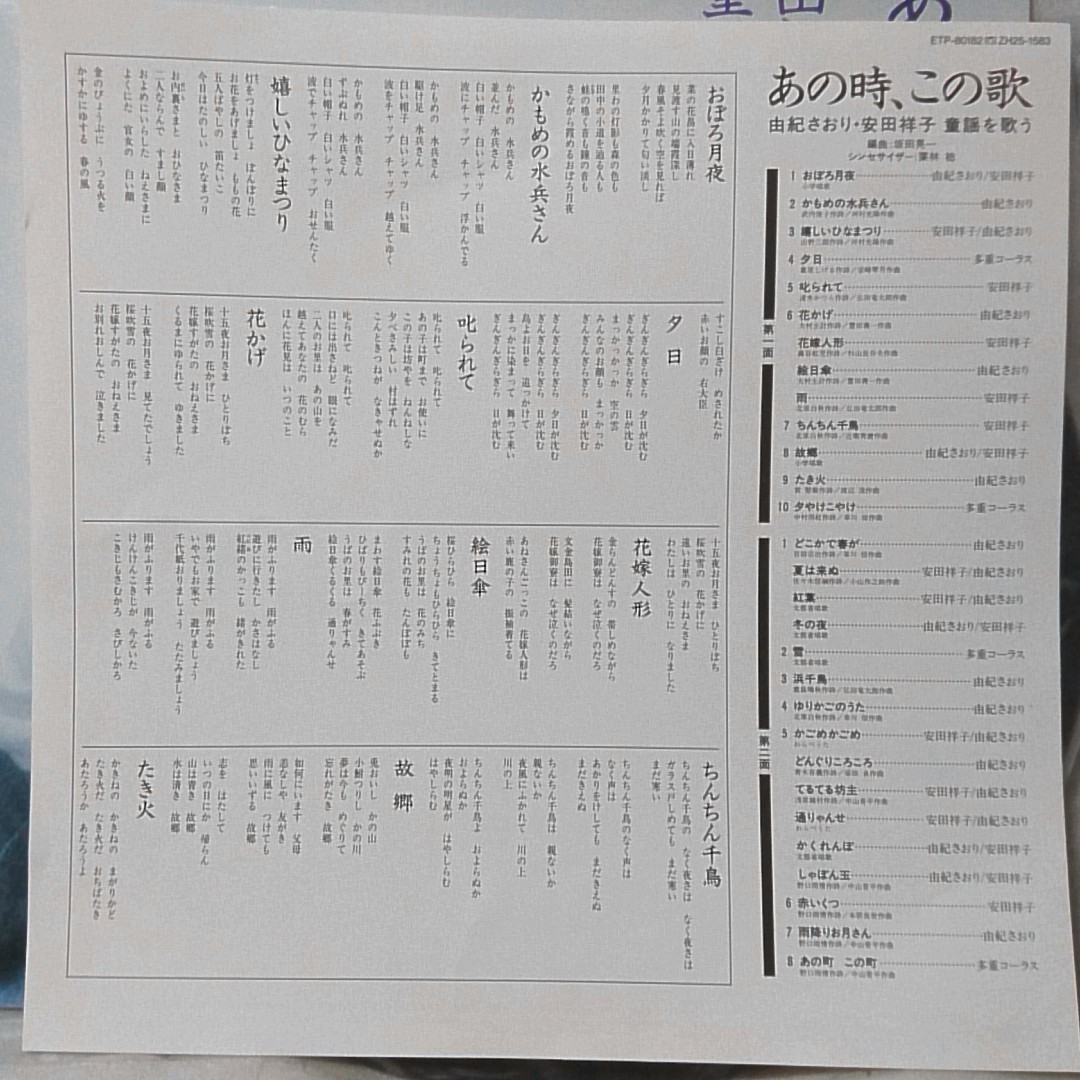 童
あ
ETP-80182
ZH25-1583
あの時、この歌
由紀さおり・安田祥子 童謡を歌う
編曲:坂田晃一
シンセサイザー:栗林 稔
第一面
1 おぼろ月夜 由紀さおり/安田祥子
小学唱歌
2 かもめの水兵さん 由紀さおり
武内俊子作詩/河村光陽作曲
3 嬉しいひなまつり 安田祥子/由紀さおり
山野三郎作詩/河村光陽作曲
4 夕日 多重コーラス
葛原しげる作詩/室崎琴月作曲
5 叱られて 安田祥子
清水かつら作詩/弘田竜太郎作曲
6 花かげ 由紀さおり
大村主計作詩/豊田義一作曲
花嫁人形 安田祥子
蕗谷虹児作詩/杉山長谷夫作曲
絵日傘 由紀さおり
大村主計作詩/豊田義一作曲
雨 安田祥子
北原白秋作詩/弘田竜太郎作曲
7 ちんちん千鳥 安田祥子
北原白秋作詩/近衛秀麿作曲
8 故郷 由紀さおり/安田祥子
小学唱歌
9 たき火 由紀さおり
巽 聖歌作詩/渡辺 茂作曲
10 夕やけこやけ 多重コーラス
中村雨紅作詩/草川 信作曲
第二面
1 どこかで春が 由紀さおり
百田宗治作詩/草川 信作曲
夏は来ぬ 安田祥子/由紀さおり
佐々木信綱作詩/小山作之助作曲
紅葉 安田祥子/由紀さおり
文部省唱歌
冬の夜 由紀さおり/安田祥子
文部省唱歌
2 雪 多重コーラス
文部省唱歌
3 浜千鳥 由紀さおり
鹿島鳴秋作詩/弘田竜太郎作曲
4 ゆりかごのうた 由紀さおり
北原白秋作詩/草川 信作曲
5 かごめかごめ 安田祥子/由紀さおり
わらべうた
どんぐりころころ 由紀さおり
青木存義作詩/梁田 貞作曲
てるてる坊主 安田祥子
浅原鏡村作詩/中山晋平作曲
通りゃんせ 安田祥子/由紀さおり
わらべうた
かくれんぼ 由紀さおり/安田祥子
文部省唱歌
しゃぼん玉 由紀さおり/安田祥子
野口雨情作詩/中山晋平作曲
6 赤いくつ 安田祥子
野口雨情作詩/本居長世作曲
7 雨降りお月さん 由紀さおり
野口雨情作詩/中山晋平作曲
8 あの町 この町 多重コーラス
野口雨情作詩/中山晋平作曲
おぼろ月夜
菜の花畠に入日薄れ
見渡す山の端霞深し
春風そよ吹く空を見れば
夕月かかりて匂い淡し
里わの灯影も森の色も
田中の小道を辿る人も
蛙の鳴く音も鐘の音も
さながら霞めるおぼろ月夜
かもめの水兵さん
かもめの 水兵さん
並んだ 水兵さん
白い帽子 白いシャツ 白い服
波にチャップ チャップ 浮かんでる
かもめの 水兵さん
駆け足 水兵さん
白い帽子 白いシャツ 白い服
波をチャップ チャップ 越えてゆく
かもめの 水兵さん
ずぶぬれ 水兵さん
白い帽子 白いシャツ 白い服
波でチャップ チャップ おせんたく
嬉しいひなまつり
灯をつけましょ ぼんぼりに
お花をあげましょ ももの花
五人ばやしの 笛たいこ
今日はたのしい ひなまつり
お内裏さまと おひなさま
二人ならんで すまし顔
およめにいらした ねえさまに
よくにた 官女の 白い顔
金のびょうぶに うつる火を
かすかにゆする 春の風
すこし白ざけ めされたか
赤いお顔の 右大臣
夕日
ぎんぎんぎらぎら 夕日が沈む
ぎんぎんぎらぎら 日が沈む
まっかっかっか 空の雲
みんなのお顔も まっかっか
ぎんぎんぎらぎら 日が沈む
ぎんぎんぎらぎら 夕日が沈む
ぎんぎんぎらぎら 日が沈む
烏よお日を 追っかけて
まっかに染まって 舞って来い
ぎんぎんぎらぎら 日が沈む
叱られて
叱られて 叱られて
あの子は町まで お使いに
この子は坊やを ねんねしな
夕べさみしい 村はずれ
こんときつねが なきゃせぬか
叱られて 叱られて
口には出さねど 眼になみだ
二人のお里は あの山を
越えてあなたの 花のむら
ほんに花見は いつのこと
花かげ
十五夜お月さま ひとりぼち
桜吹雪の 花かげに
花嫁すがたの おねえさま
くるまにゆられて ゆきました
十五夜お月さま 見てたでしょう
桜吹雪の 花かげに
花嫁すがたの おねえさま
お別れおしんで 泣きました
十五夜お月さま ひとりぼち
桜吹雪の 花かげに
遠いお里の おねえさま
わたしは ひとりに なりました
花嫁人形
金らんどんすの 帯しめながら
花嫁御寮は なぜ泣くのだろ
文金島田に 髪結いながら
花嫁御寮は なぜ泣くのだろ
あねさんごっこの 花嫁人形は
赤い鹿の子の 振袖着てる
絵日傘
桜ひらひら 絵日傘に
ちょうちょもひらひら きてとまる
うばのお里は 花のみち
すみれの花も たんぽぽも
まわす絵日傘 花ふぶき
ひばりもぴーちく きてあそぶ
うばのお里は 春がすみ
絵日傘くるくる 通りゃんせ
雨
雨がふります 雨がふる
遊びに行きたし かさはなし
紅緒のかっこも 緒がきれた
雨がふります 雨がふる
いやでもお家で 遊びましょう
千代紙おりましょう たたみましょう
雨がふります 雨がふる
けんけんこきじが 今ないた
こきじもさむかろ さびしかろ
ちんちん千鳥
ちんちん千鳥の なく夜さは なく夜さは
ガラス戸しめても まだ寒い
まだ寒い
ちんちん千鳥のなく声は
なく声は
あかりをけしても まだきえぬ
まだきえぬ
ちんちん千鳥は 親ないか
親ないか
夜風にふかれて 川の上
川の上
ちんちん千鳥よ およらぬか
およらぬか
夜明の明星が はやしらむ
はやしらむ
故郷
兎おいし かの山
小鮒つりし かの川
夢は今も めぐりて
忘れがたき 故郷
如何にいます 父母
恙なしや 友がき
雨に風に つけても
思いいずる 故郷
志を はたして
いつの日にか 帰らん
山は青き 故郷
水は清き 故郷
たき火
かきねの かきねの まがりかど
たき火だ たき火だ おちばたき
あたろうか あたろうよ